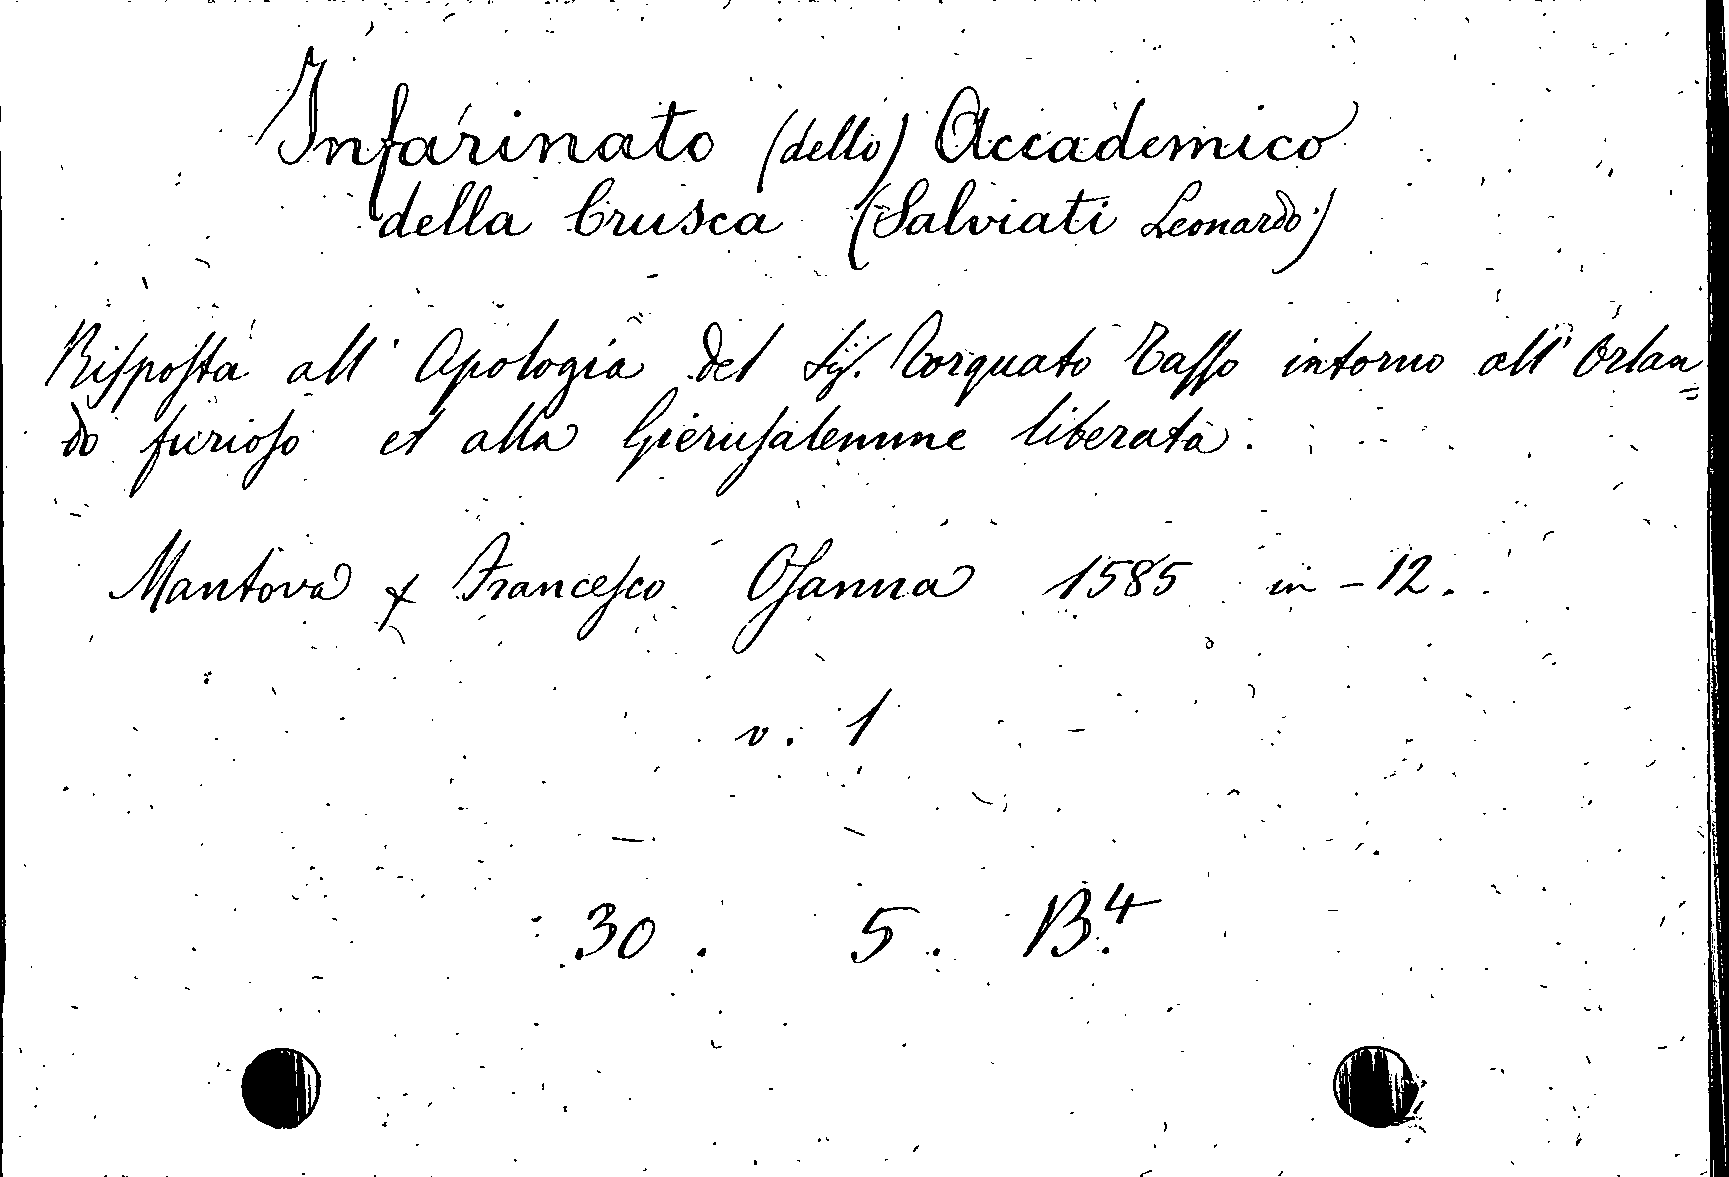 Infarinato (dello) Accademico
della Crusca (Salviati Leonardo)
Risposta all' Apologia del Sig. Torquato Tasso intorno all' Orlan=
do furioso et alla Gierusalemme liberata.
Mantova x Francesco Osanna 1585 in-12.
v. 1
30. 5. B.4